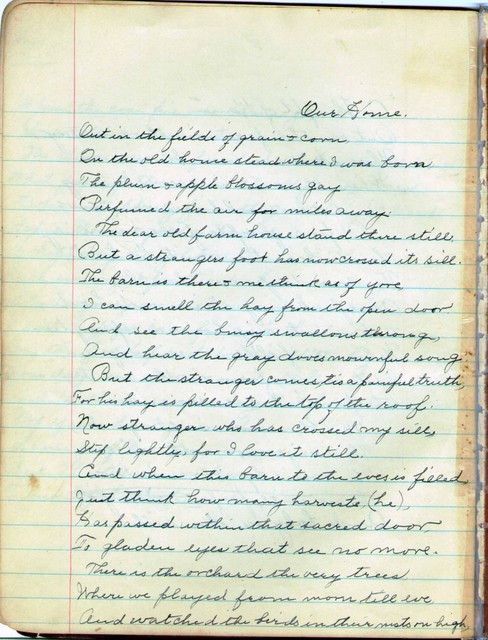 Our Home.
Out in the fields of grain & corn
On the old home stead where I was born
The plum & apple blossoms gay
Perfumed the air for miles away.
The dear old farm house stand there still
But a strangers foot has now crossed its sill.
The barn is there & me think as of yore
I can smell the hay from the open door
And see the busy swallows throng,
And hear the gray doves mournful song
But the stranger comes, tis a painful truth,
For his hay is pilled to the top of the roof.
Now stranger who has crossed my sill,
Step lightly, for I love it still.
And when this barn to the eves is filled
Just think how many harvests (he),
Has passed within that sacred door
To gladen eyes that see no more.
There is the orchard the very trees
Where we played from morn till eve
And watched the birds in their nests on high,